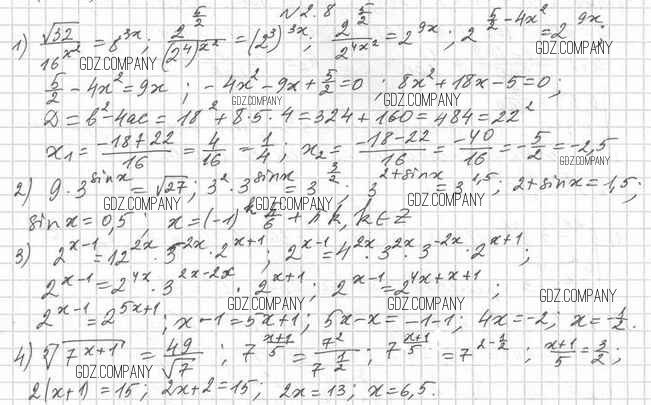 N 2.8
1) √32 / 16^(x²) = 8^(3x); 2^(5/2) / (2⁴)^(x²) = (2³)^(3x); 2^(5/2) / 2^(4x²) = 2^(9x); 2^(5/2 - 4x²) = 2^(9x);
GDZ.COMPANY GDZ.COMPANY
5/2 - 4x² = 9x; -4x² - 9x + 5/2 = 0; 8x² + 18x - 5 = 0;
GDZ.COMPANY GDZ.COMPANY
D = b² - 4ac = 18² + 8·5·4 = 324 + 160 = 484 = 22²
x₁ = (-18+22)/16 = 4/16 = 1/4; x₂ = (-18-22)/16 = -40/16 = -5/2 = -2,5
GDZ.COMPANY GDZ.COMPANY GDZ.COMPANY
2) 9·3^(sinx) = √27; 3²·3^(sinx) = 3^(3/2); 3^(2+sinx) = 3^(1,5); 2+sinx = 1,5;
GDZ.COMPANY GDZ.COMPANY
sinx = 0,5; x = (-1)^k π/6 + πk, k∈Z
3) 2^(x-1) = 12^(2x)·3^(-2x)·2^(x+1); 2^(x-1) = 4^(2x)·3^(2x)·3^(-2x)·2^(x+1);
GDZ.COMPANY
2^(x-1) = 2^(4x)·3^(2x-2x)·2^(x+1); 2^(x-1) = 2^(4x+x+1);
GDZ.COMPANY GDZ.COMPANY GDZ.COMPANY
2^(x-1) = 2^(5x+1); x-1 = 5x+1; 5x-x = -1-1; 4x = -2; x = -1/2.
4) ⁵√(7^(x+1)) = 49/√7; 7^((x+1)/5) = 7²/7^(1/2); 7^((x+1)/5) = 7^(2-1/2); (x+1)/5 = 3/2;
GDZ.COMPANY GDZ.COMPANY
2(x+1) = 15; 2x+2 = 15; 2x = 13; x = 6,5.